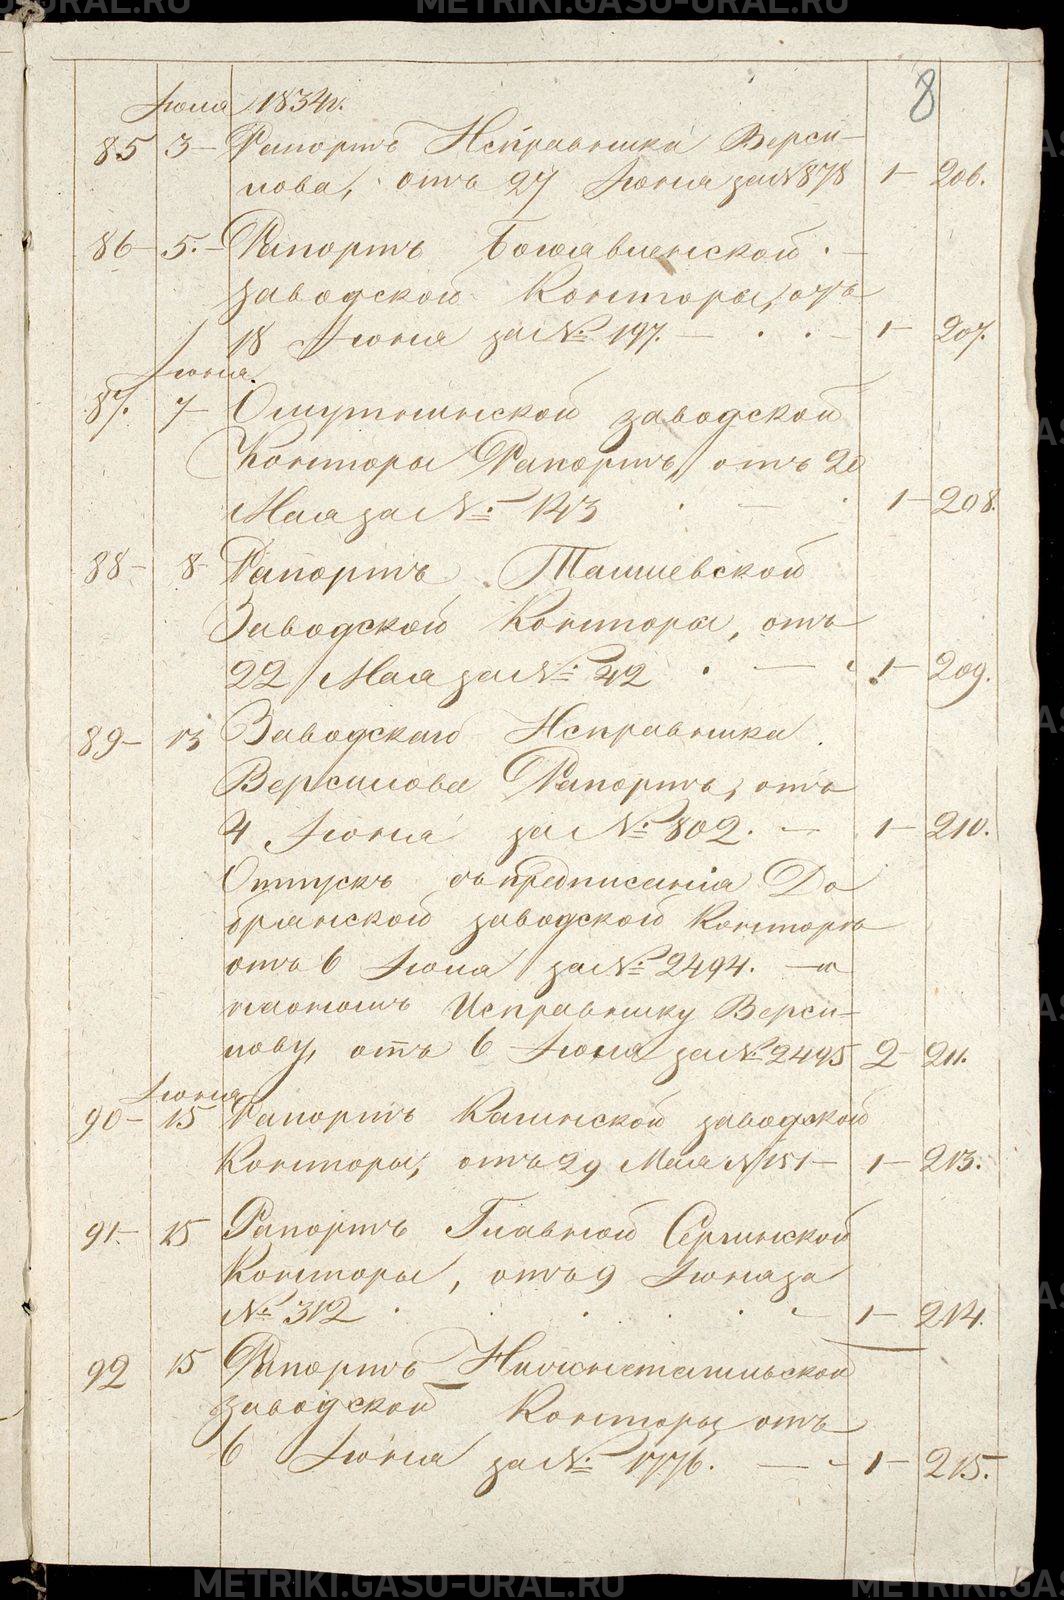 METRIKI.GASU-URAL.RU
8
Июля 1834г.
85 3 Рапортъ Исправника Верси-
лова, отъ 27 Июня за № 878 1 206.
86 5. Рапортъ Богоявленской
заводской Конторы, отъ
18 Июня за № 197. 1 207.
Июня.
87. 7 Омутнинской заводской
Конторы Рапортъ, отъ 20
Мая за № 143 1 208.
88 8 Рапортъ Ташиевской
Заводской Конторы, отъ
22 Мая за № 42 1 209.
89 13 Заводскаго Исправника
Версилова Рапортъ, отъ
4 Июня за № 802. 1 210.
Отпускъ съ предписанія До
брянской заводской Конторѣ
отъ 6 Июля за № 2494. и
таковомъ Исправнику Верси-
лову, отъ 6 Июля за № 2495 2 211.
Июня
90 15 Рапортъ Кагинской заводской
Конторы, отъ 29 Мая № 151 1 213.
91 15 Рапортъ Главной Сергинской
Конторы, отъ 9 Июня за
№ 312 1 214.
92 15 Рапортъ Нижнетагильской
заводской Конторы отъ
6 Июня за № 1776. 1 215.
METRIKI.GASU-URAL.RU